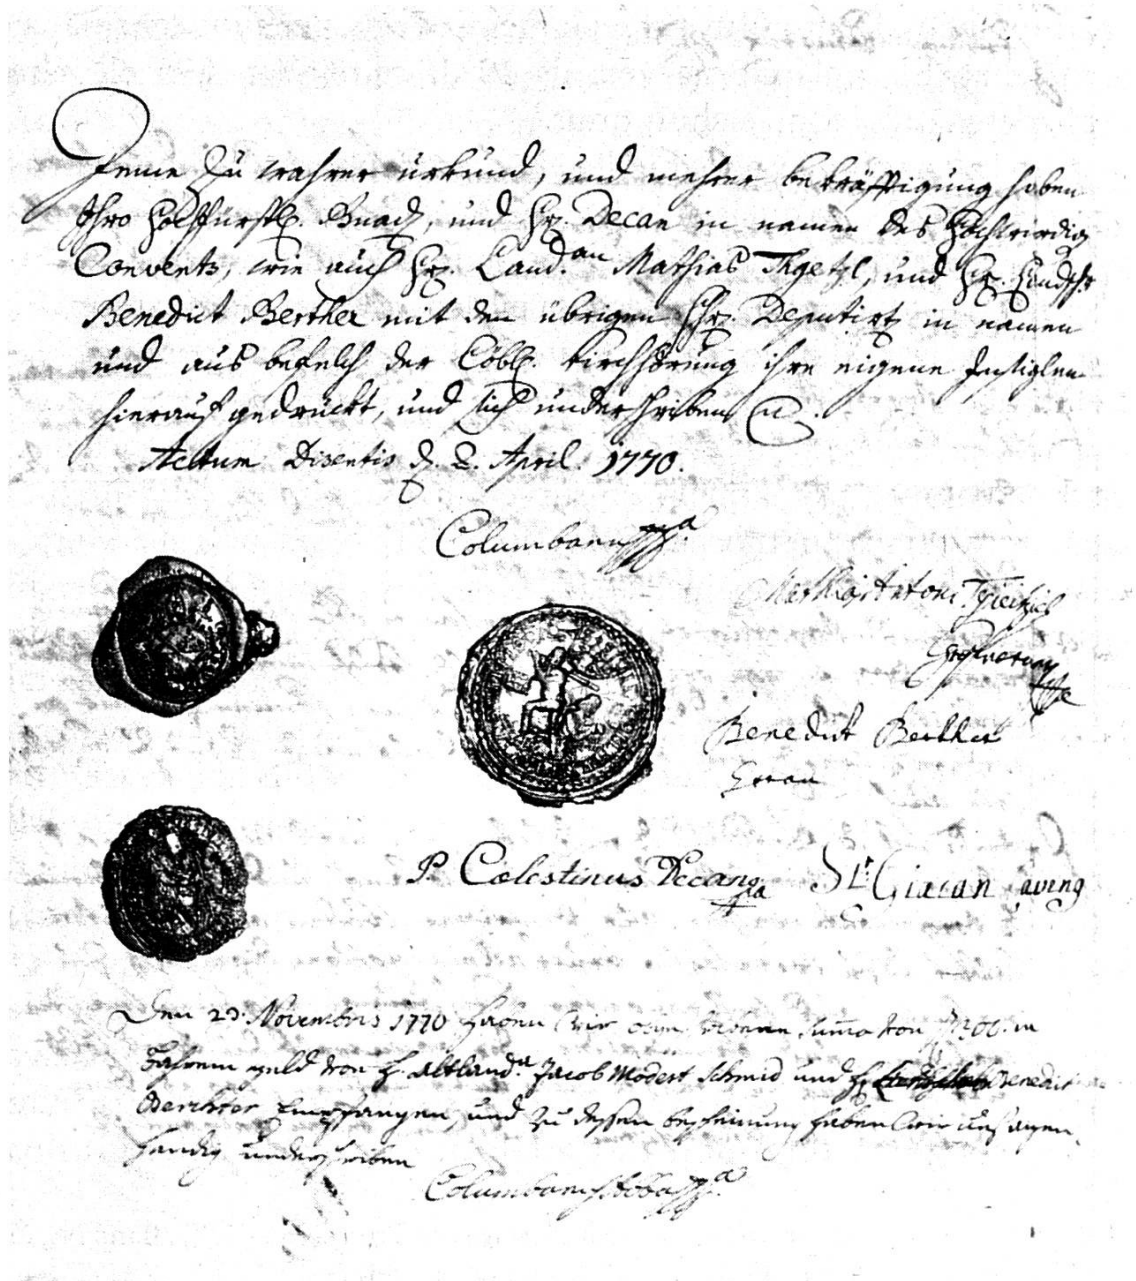 Deme zu wahrer urkund, und mehrer bekräfftigung haben
Ihro Hochfürstl. Gnad, und Hr. Decan in namen des Hochwirdig
Convents, wie auch Hr. Land.an Mathias Thgetgl, und Hr.
Benedict Berther mit den übrigen Hr. Deputirt in namen
und aus befelch der Löbl. Kirchhörung ihre eigene Insiglen
hierauf gedrückt, und sich underschriben
Actum Disentis d. 2. April. 1770.
Columbanus
Benedict Berther
P. Cœlestinus Decanq
Giacan
Den 23. Novembris 1770 haben wir summa von
bahrem geld von H. altland.a Jacob Modest Schmid und H. Benedict
Berchter Empfangen, und zu dessen bescheinung haben wir uns aigen
handig underschriben
Columbanus abbas